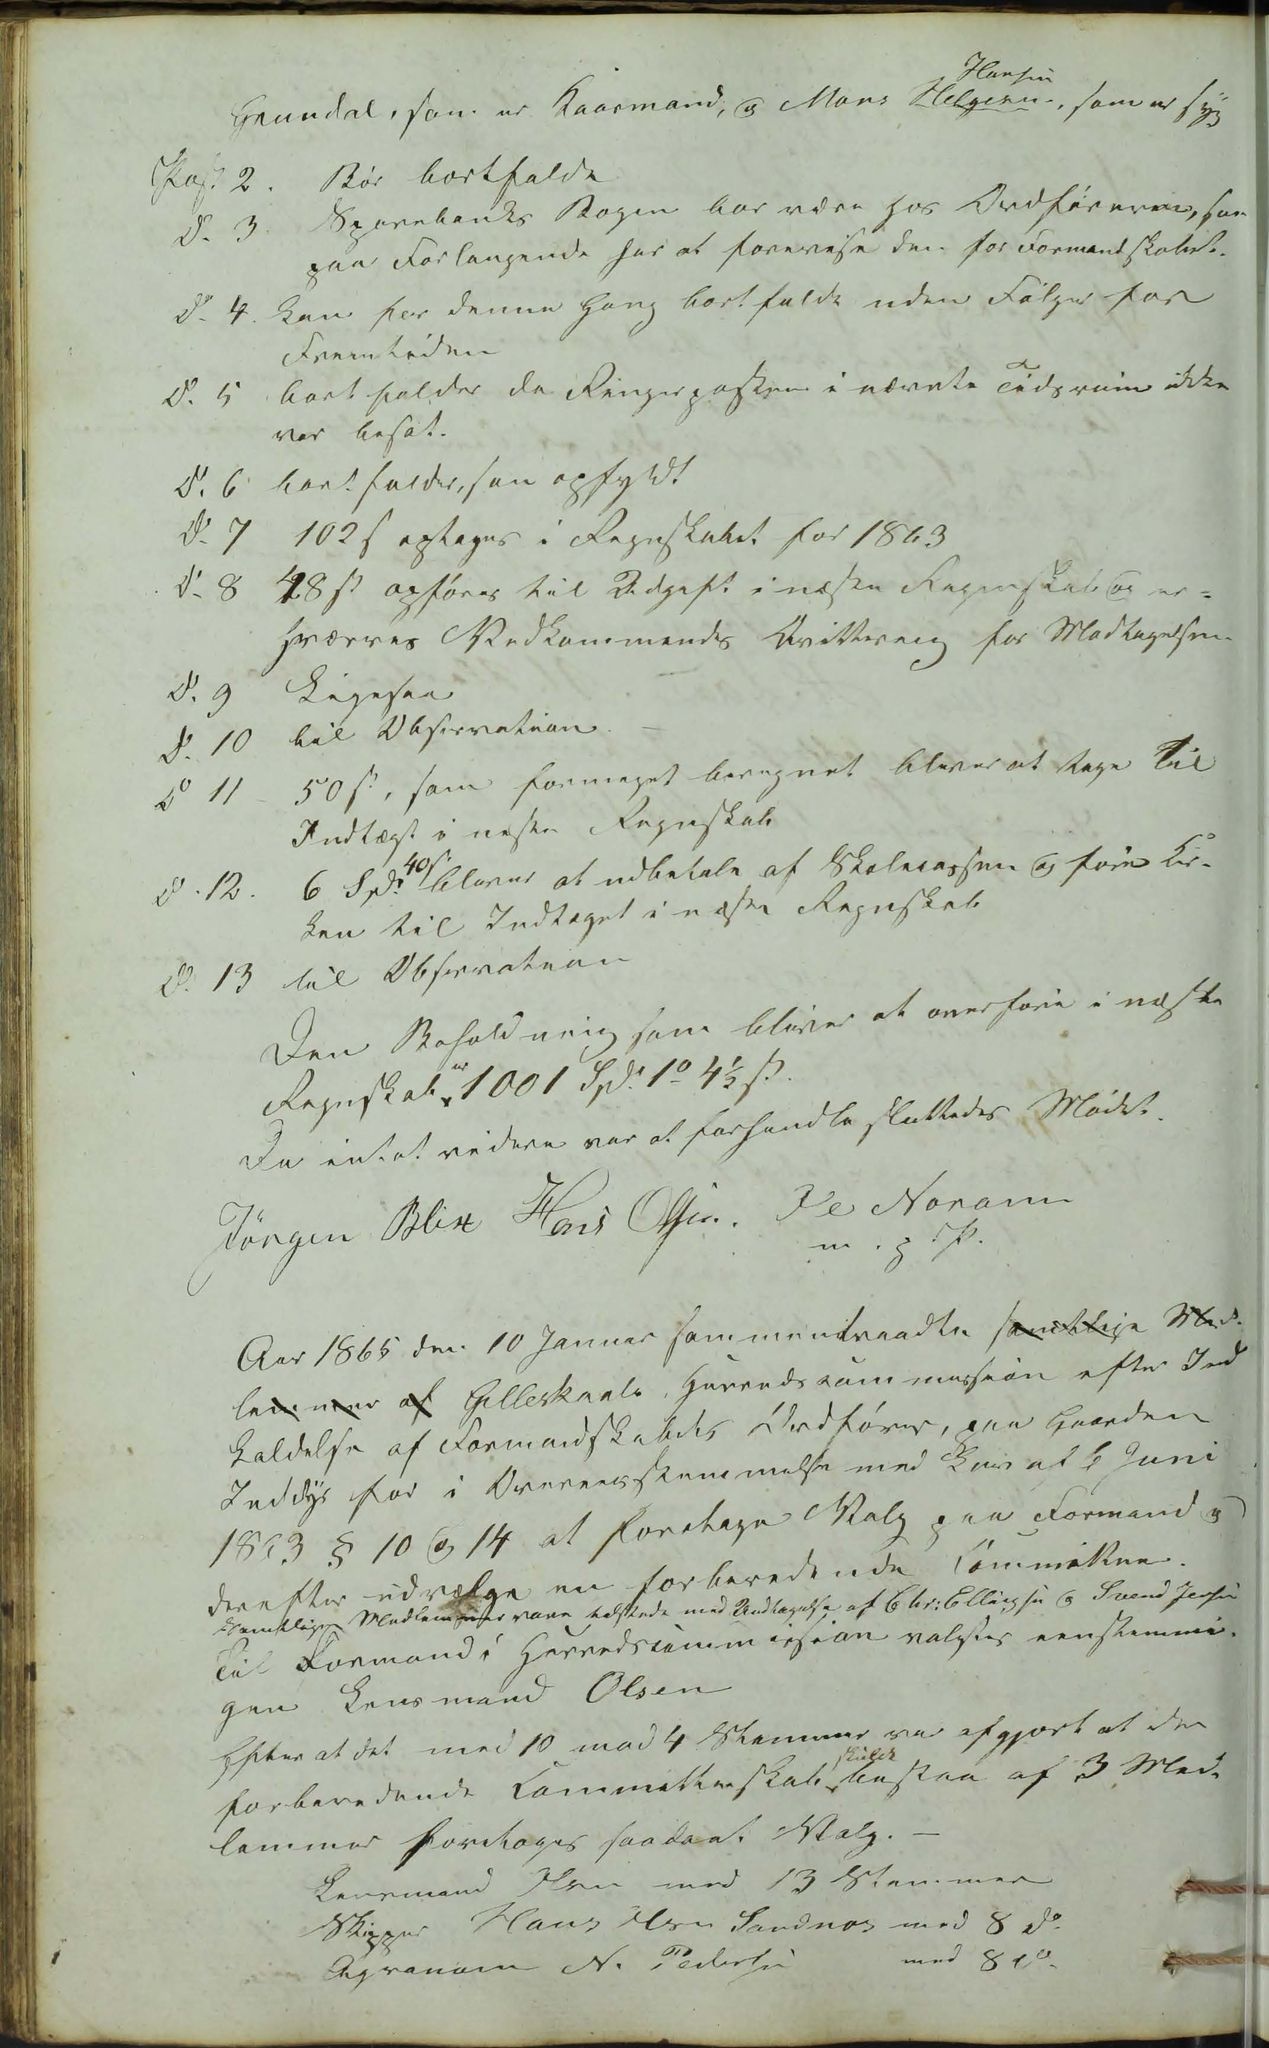 Hansen
Grundal, som er Kaarmand, og Mons Helgesen, som er syg
Post 2. Bør bortfalde
Do. 3 Sparebanks Bogen bør være hos Ordføreren, som
paa Forlangende har at forevise den for Formandskabet.
Do. 4. kan for denne Gang bortfalde uden Følger for
Fremtiden
Do. 5 bortfalder da Ringerposten i nævnte Tidsrum ikke
var besat.
Do. 6 bortfalder, som opfyldt
Do. 7 102 s optages i Regnskabet for 1863
Do. 8 48 s opføres til Udgift i næste Regnskab og er=
hverves Vedkommendes Qvittering for Modtagelsen
Do. 9 Ligesaa
Do. 10 til Observation. —
Do 11 50 s, som formeget beregnet bliver at tage til
Indtægt i næste Regnskab
Do. 12. 6 Spd. 40 s bliver at udbetale af Skolecassen og føre Kir-
ken til Indtægt i næste Regnskab
Do. 13 til Observation
Den Beholdning som bliver at overføre i næste
Regnskab er 1001 Spd. 1o 4½ s.
Da intet videre var at forhandle sluttedes Mødet.
Jörgen Blix Hans Olsen. Pe Noram
m. p. P.
Aar 1865 den 10 Januar sammentraadte samtlige Med-
lemmer af Gilleskaals Herredscommission efter Ind
kaldelse af Formandskabets Ordfører, paa Gaarden
Inddyr for i Overensstemmelse med Lov af 6 Juni
1863 § 10 og 14 at foretage Valg paa Formand og
derefter udvælge en forberedende Committee.
Samtlige Medlemmer vare tilstede med Undtagelse af Chr: Ellingsen og Svend Jensen
Til Formand i Herredscommission valgtes eenstemmi-
gen Lensmand Olsen
Efter at det med 10 mod 4 Stemmer var afgjort at den
forberedende Committeeskab skulde bestaa af 3 Med-
lemmer foretoges saadant Valg. —
Lensmand Olsen med 13 Stemmer
Skipper Hans Olsen Sandnæs med 8 do.
Agronom N. Pedersen med 8 do.